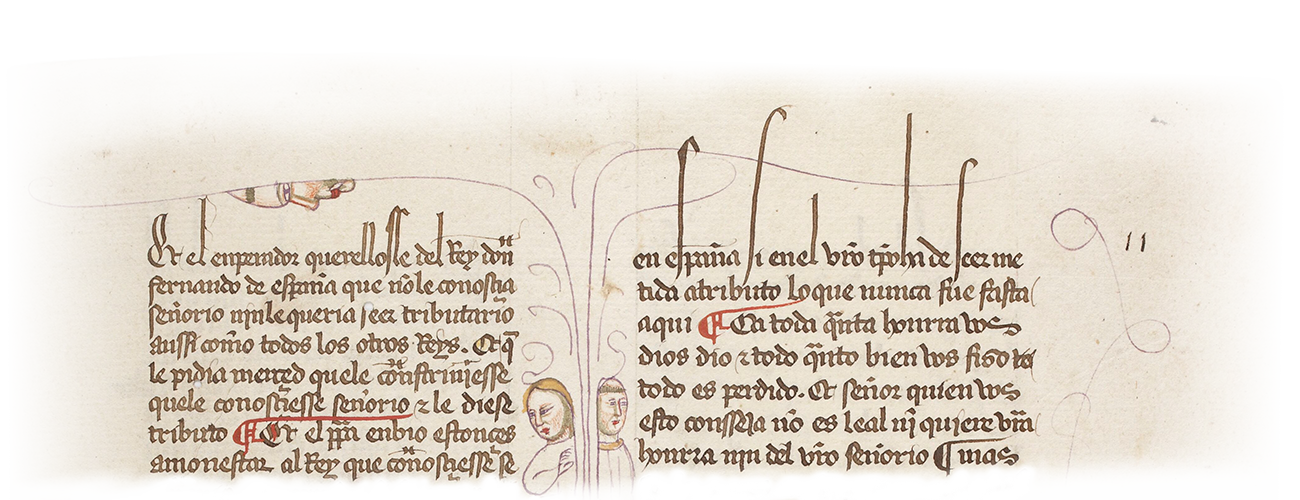 Et el enperador querellosse del Rey don
fernando de españa que nõ le conosçia
señorio nin le queria seer tributario
aussi como todos los otros Reys. Et q̃
le pidia merçed quele costrinniesse
quele conosçiesse señorio ⁊ le diese
tributo ¶ Et el pp̃a enbio estonçes
amonestar al Rey que conosçiesse se
en españa si en el vr̃o tp̃o ha de seer me
tida a tributo lo que nunca fue fasta
aqui ¶ Ca toda q̃nta honrra uos
dios dio ⁊ todo q̃nto bien uos fizo
todo es perdido. Et señor quien uos
esto conseia nõ es leal nj̃ quiere vr̃a
honrra nin del vr̃o señorio ¶ mas
11